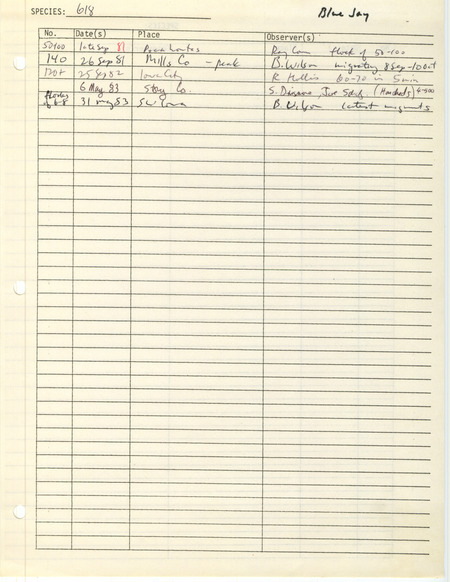 SPECIES: 618 Blue Jay
No. Date(s) Place Observer(s)
50-100 late Sep 81 Pocahontas Ray flock of 50-100
140 26 Sep 81 Mills Co - peak B. Wilson migrating 8 Sep - 10 Oct
120+ 25 Sep 82 Iowa City R Hollis 60-70 in 5 min
6 May 83 Story Co. S. Dinsmore, (Hundreds)
flocks of 6-8 31 May 83 SW Iowa B Wilson latest migrants